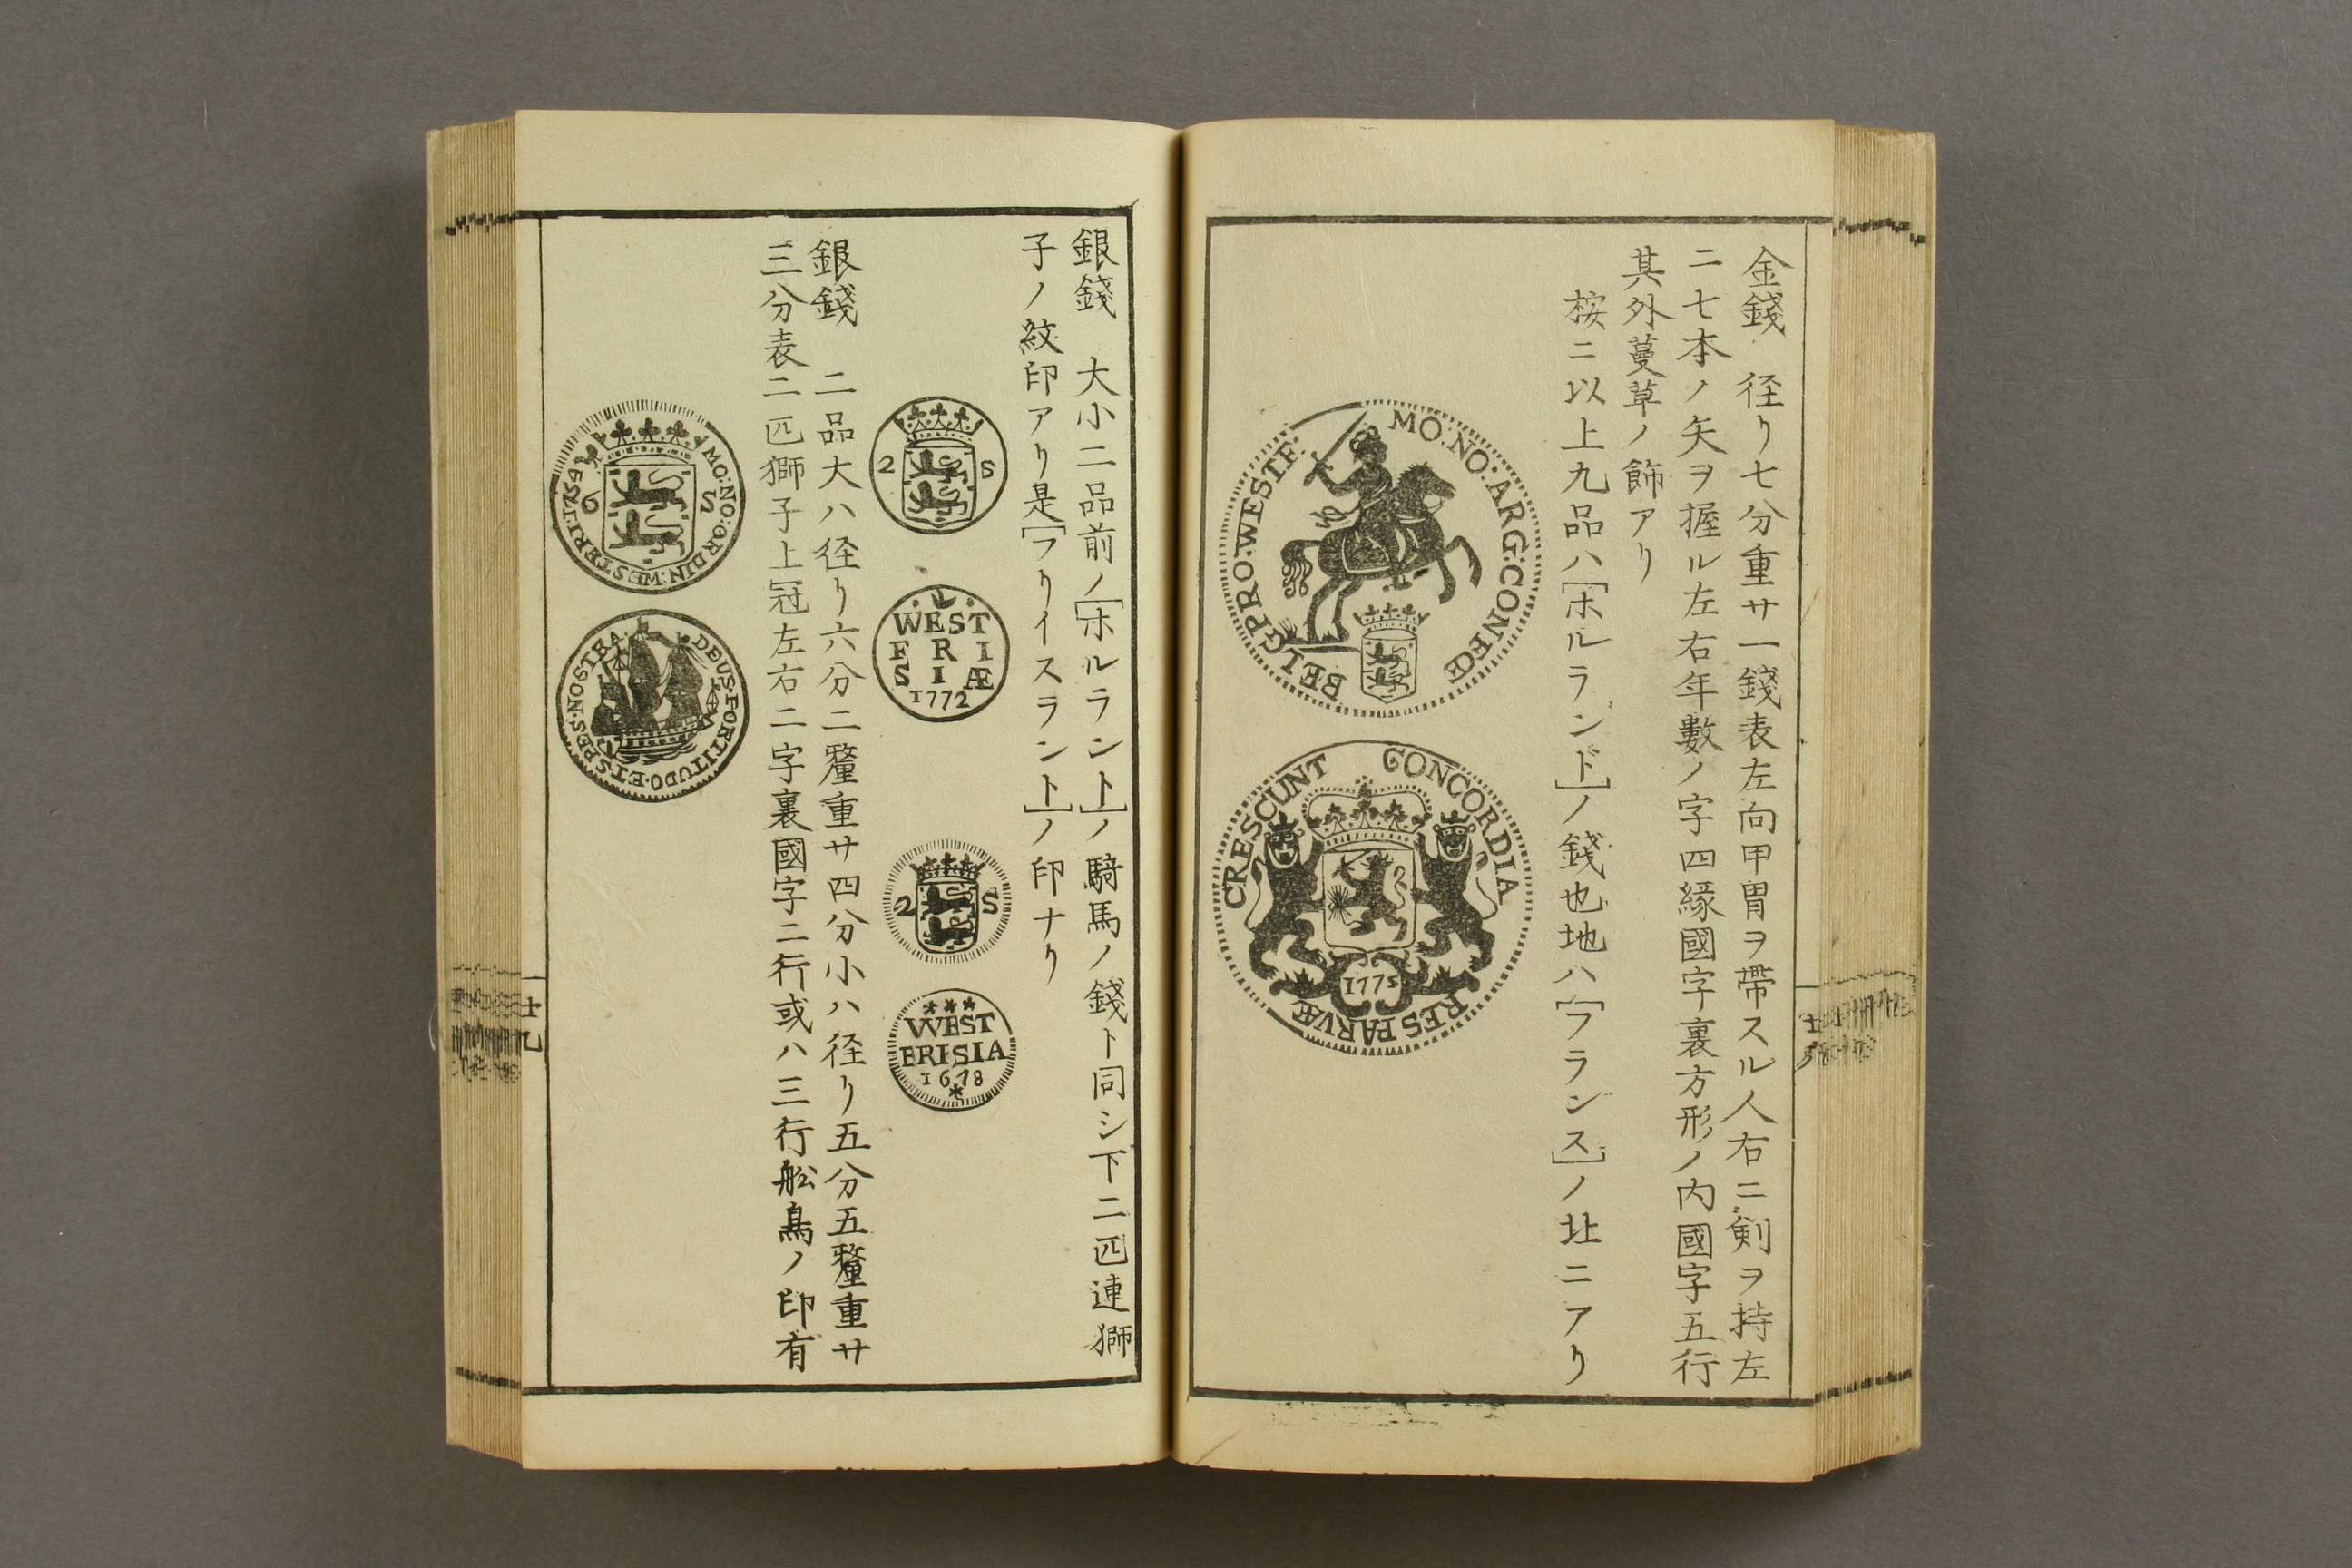 金錢　径リ七分重サ一錢表左向甲冑ヲ帶スル人右ニ剣ヲ持左
ニ七本ノ矢ヲ握ル左右年數ノ字四緣國字裏方形ノ内國字五行
其外蔓草ノ飾アリ
桉ニ以上九品ハ[ホルランド]ノ錢也地ハ[フランス]ノ北ニアリ
MO:NO:ARG:CONFŒ
BELG:PRO:WESTF:
CONCORDIA
RES PARVÆ
CRESCUNT
1775
銀錢　大小二品前ノ[ホルラント]ノ騎馬ノ錢ト同シ下二匹連獅
子ノ紋印アリ是[フリイスラント]ノ印ナリ
2 S
WEST
F R I
S I Æ
1772
2 S
WEST
FRISIA
1678
銀錢　二品大ハ径リ六分二釐重サ四分小ハ径リ五分五釐重サ
三分表二匹獅子上冠左右二字裏國字二行或ハ三行舩鳥ノ印有
MO:NO:ORDIN:WESTFRI
6 S
DEUS·FORTITUDO·ET·SPES·NOSTRA
十九